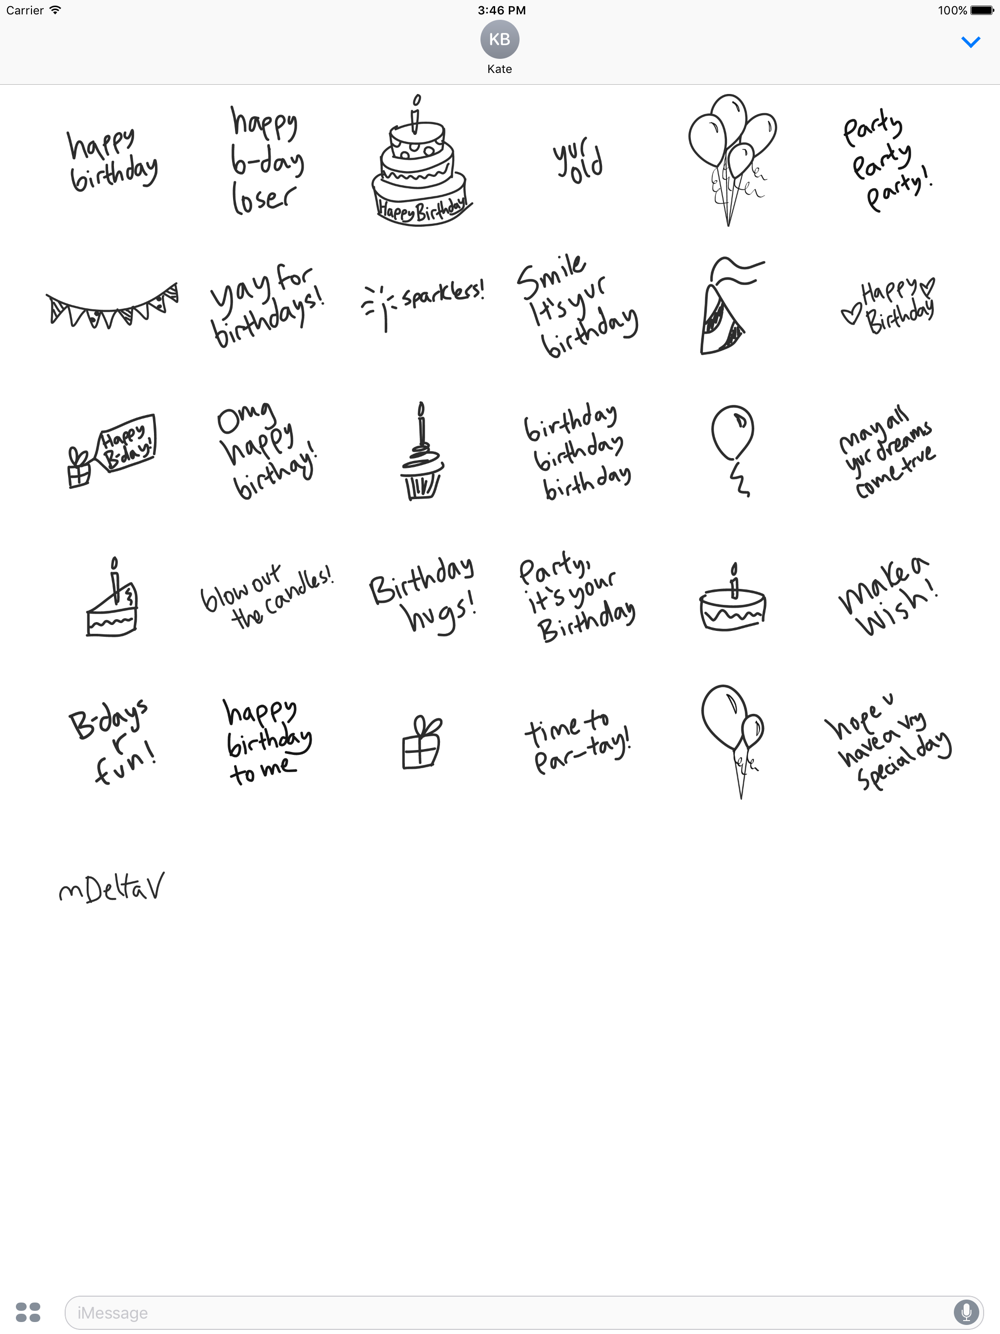 Carrier
3:46 PM
100%
KB
Kate
happy
birthday
happy
b-day
loser
Happy Birthday!
yur
old
Party
Party
Party!
yay for
birthdays!
sparklers!
Smile
It's yur
birthday
Happy
Birthday
Happy
B-day!
Omg
happy
birthay!
birthday
birthday
birthday
may all
yur dreams
come true
blow out
the candles!
Birthday
hugs!
Party,
it's your
Birthday
make a
wish!
B-days
r
fun!
happy
birthday
to me
time to
Par-tay!
hope u
have a vry
special day
mDeltaV
iMessage